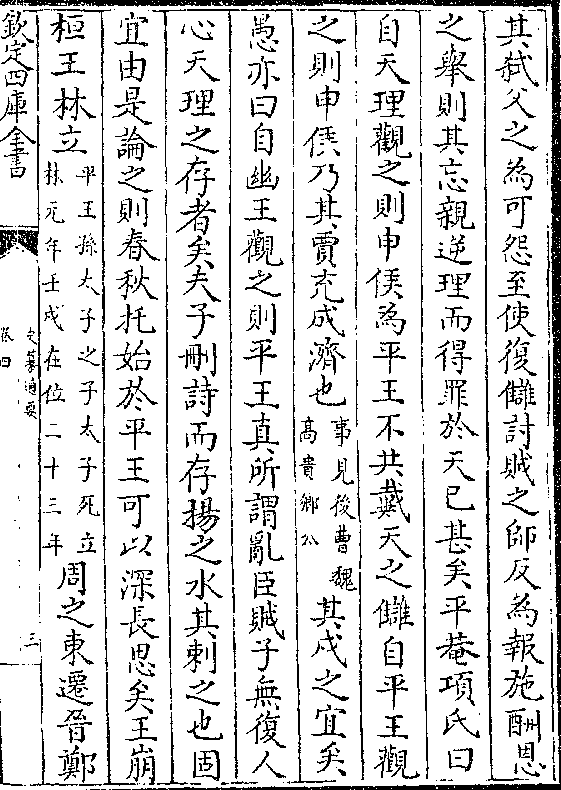 其弑父之為可怨至使復讎討賊之師反為報施酬恩
之舉則其忘親逆理而得罪於天已甚矣平菴項氏曰
自天理觀之則申侯為平王不共戴天之讎自平王觀
之則申侯乃其賈充成濟也事見後曹魏高貴鄉公其戍之宜矣
愚亦曰自幽王觀之則平王真所謂亂臣賊子無復人
心天理之存者矣夫子刪詩而存揚之水其刺之也固
宜由是論之則春秋托始於平王可以深長思矣王崩
桓王林立平王孫太子之子太子死立林元年壬戌在位二十三年周之東遷晉鄭
欽定四庫全書
史纂通要
卷四
三